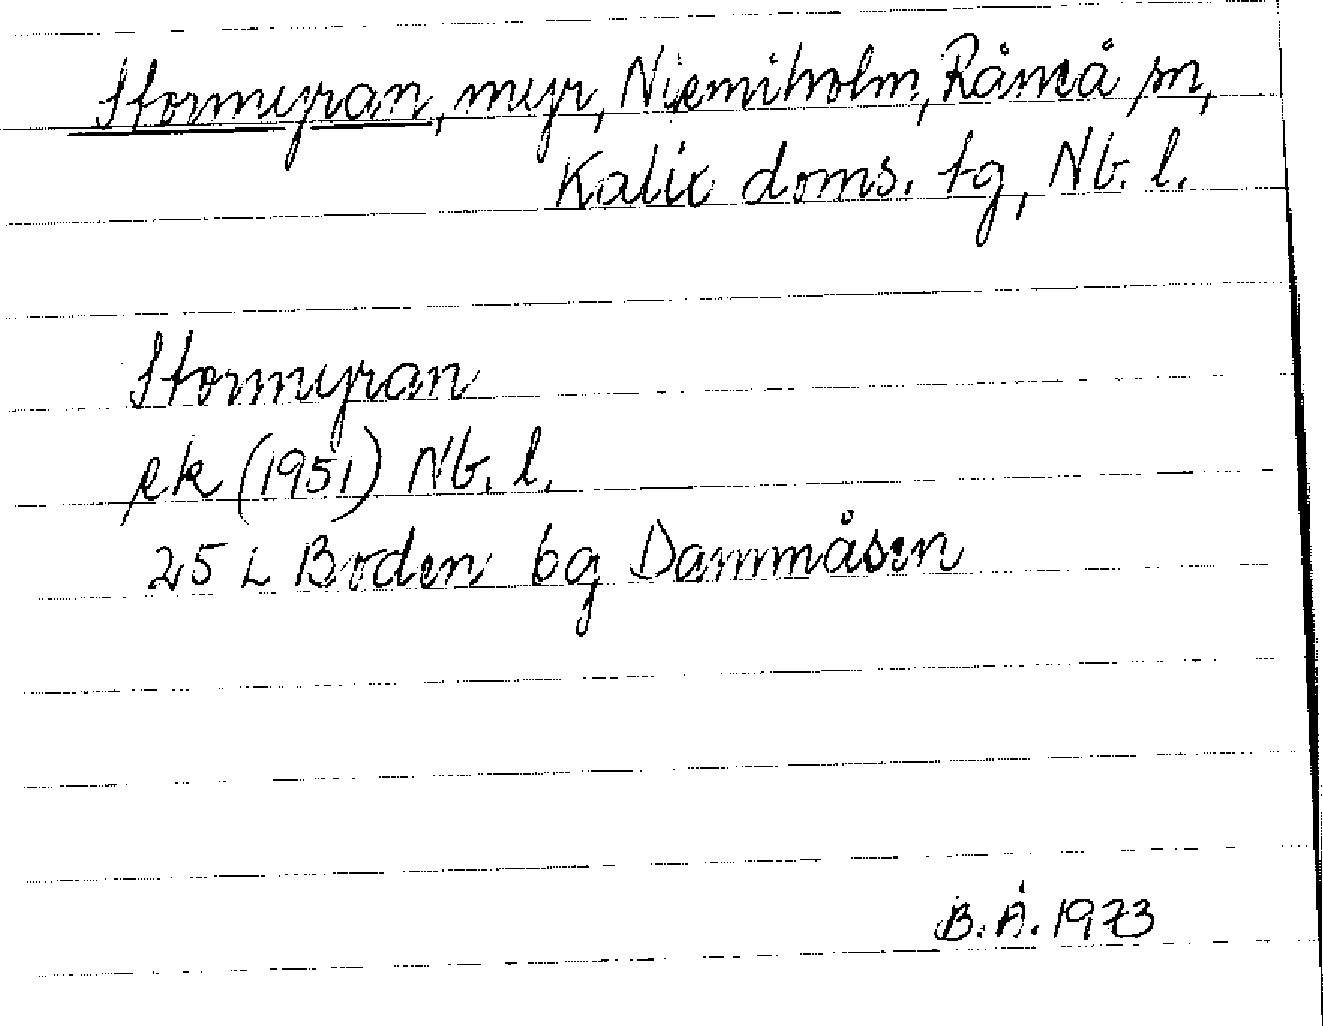 Stormyran, myr, Niemiholm, Råneå sn,
Kalix doms. tg, Nb. l.
Stormyran
ek (1951) Nb. l.
25 L Boden 6g Dammåsen
B.Å. 1973